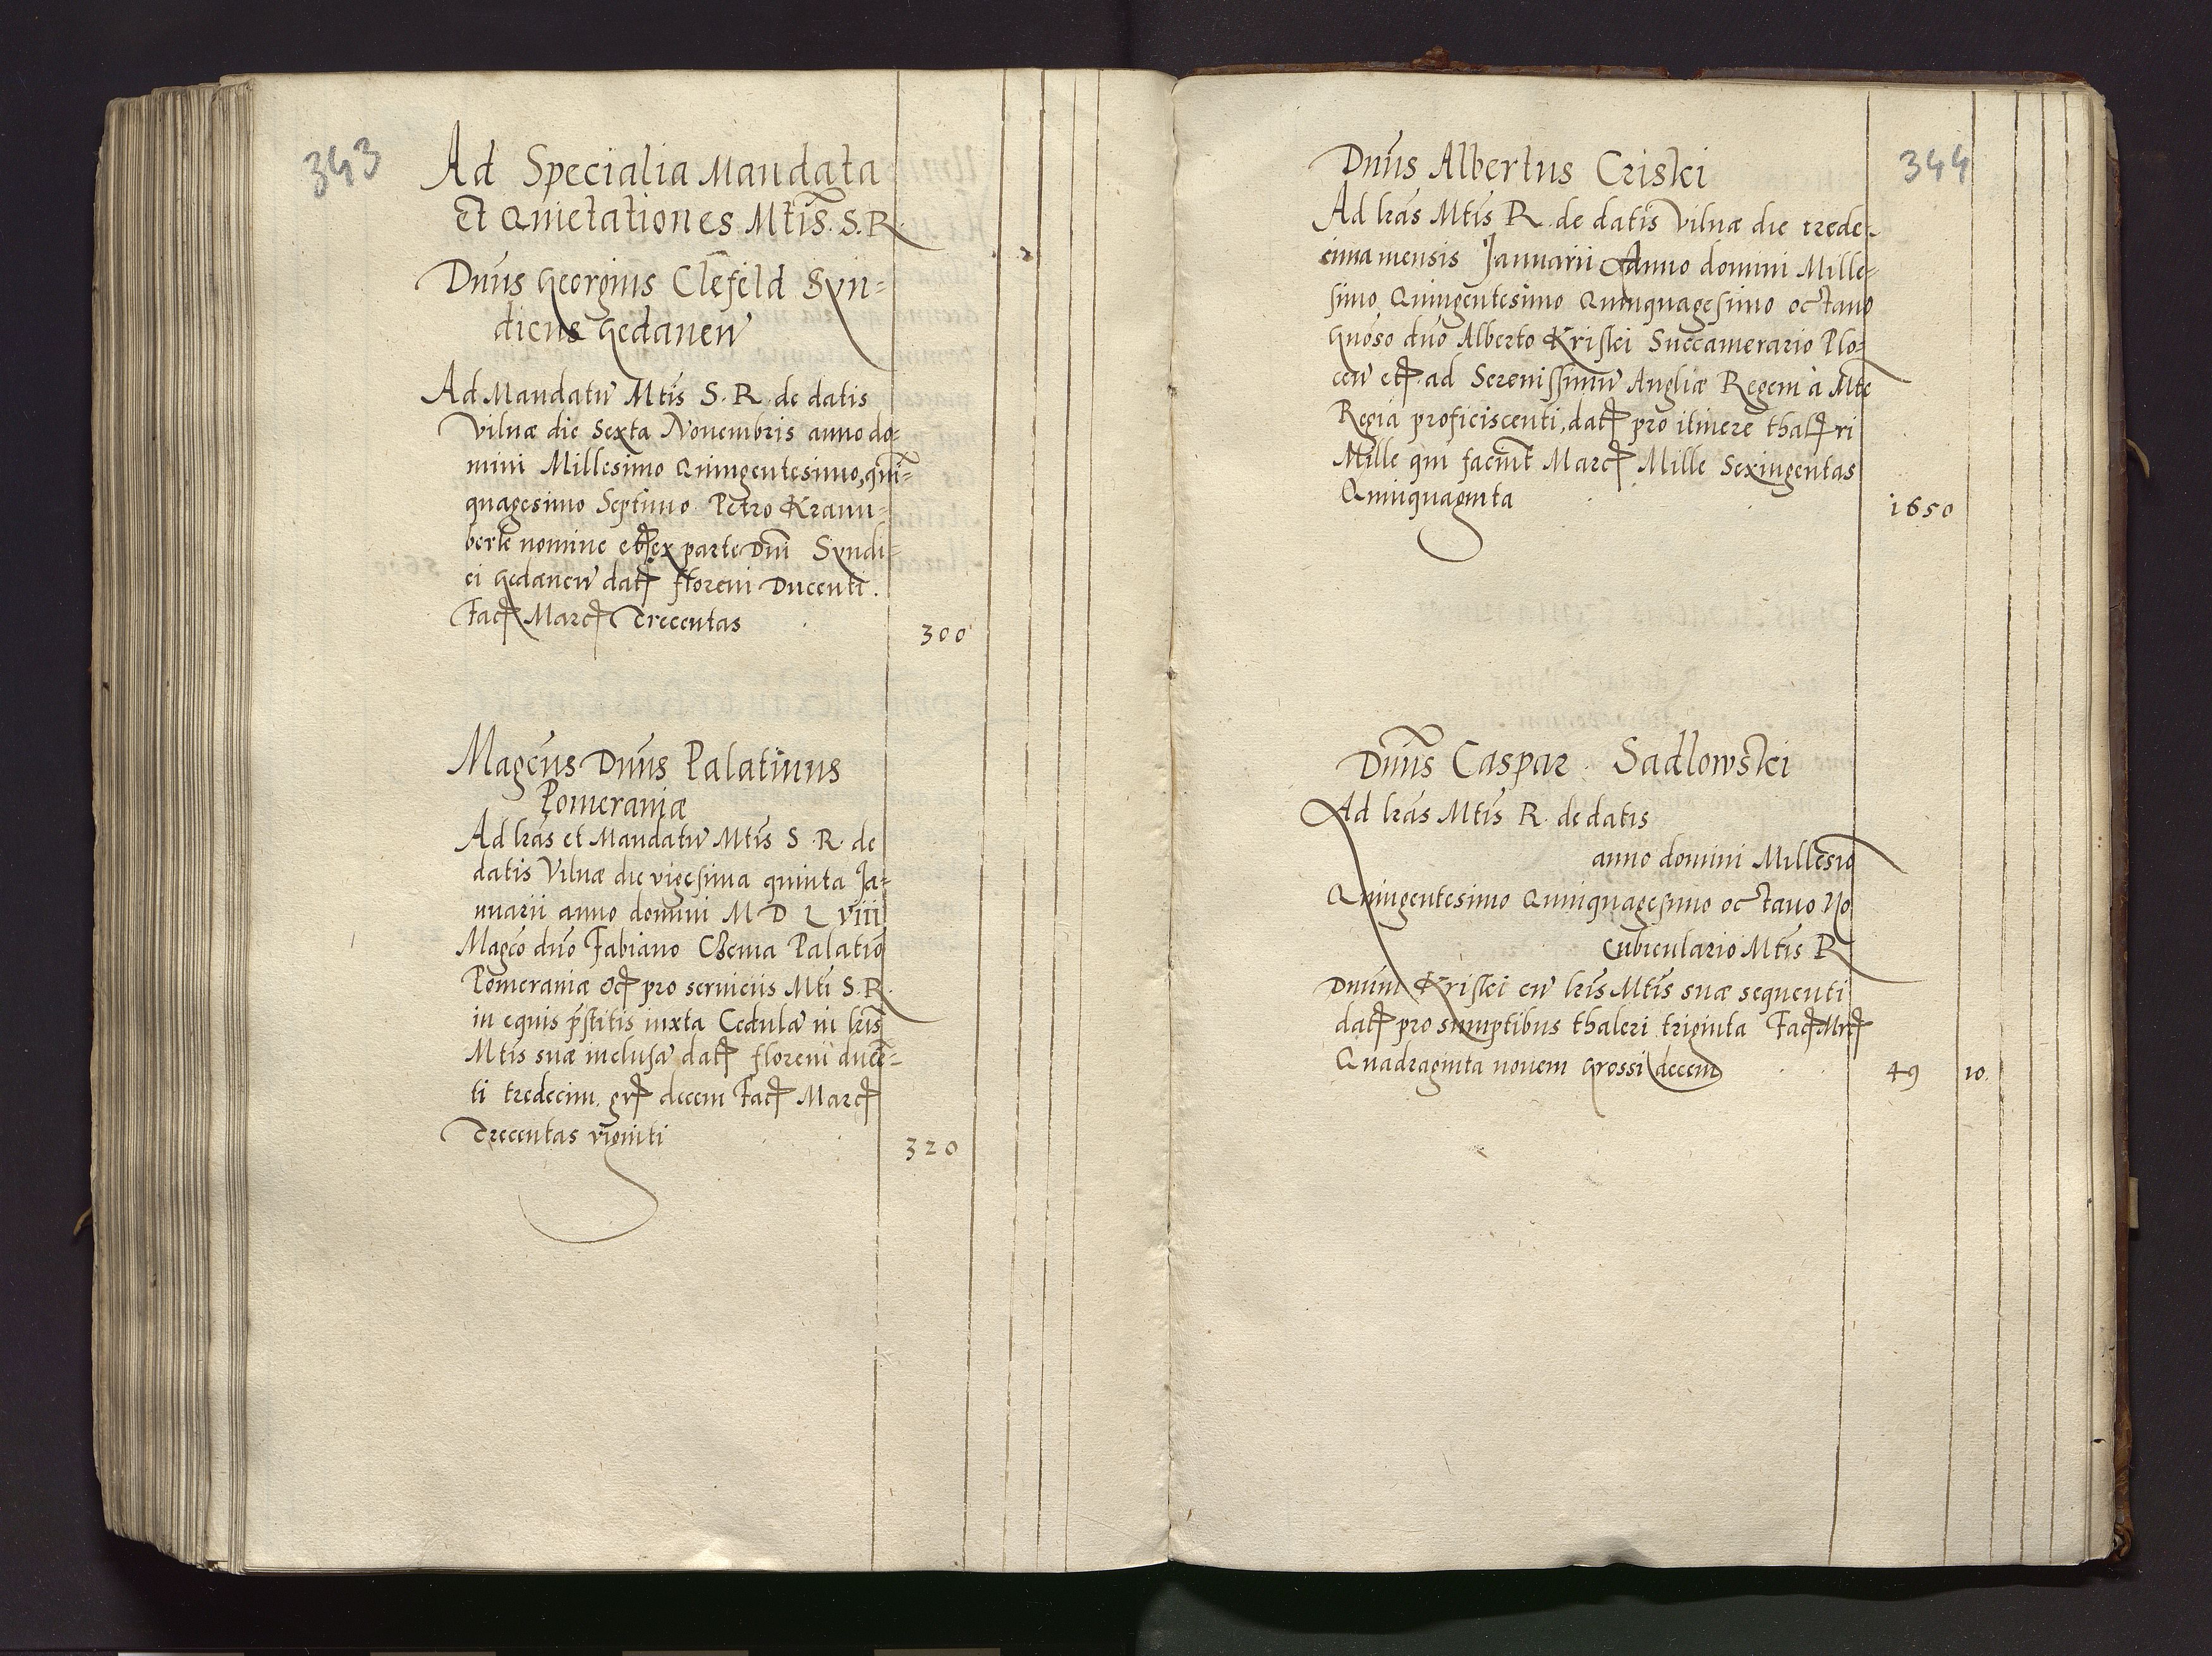 343
Ad Specialia Mandata
Et Quietationes Mtis. S. R.
Dnus Georgius Clefeld Syn=
dicus Gedanen
Ad Mandatu Mtis S. R. de datis
Vilnæ die Sexta Novembris anno do=
mini Millesimo Quingentesimo, quī=
quagesimo Septimo Petro Krann=
berk nomine et ex parte Dni Syndi=
ci Gedanen dat floreni Ducenti.
Fac Marc Trecentas
300
Magcus Dnus Palatinus
Pomeraniæ
Ad lrās et Mandatu Mtis S. R. de
datis Vilnæ die vigesima quinta Ja=
nuarii anno domini M D L viii
Magco dno Fabiano Czema Palatio
Pomeraniæ et pro serviciis Mti S. R.
in equis pstitis iuxta Cedula in lris
Mtis suæ inclusa dat floreni ducē=
ti tredecim. gr decem Fac Marc
Trecentas viginti
320
344
Dnus Albertus Criski
Ad lrās Mtis R. de datis Vilnæ die trede=
cima mensis Januarii Anno domini Mille=
simo Quingentesimo Quinquagesimo octavo
Gnoso dno Alberto Kriski Succamerario Plo=
cen et ad Serenissimu Angliæ Regem à Mte
Regia proficiscenti, dat pro itinere thal ri
Mille qui faciut Marc Mille Sexingentas
Quinquaginta
1650
Dnus Caspar Sadlowski
Ad lrās Mtis R. de datis
anno domini Millesio
Quingentesimo Quinquagesimo octavo No
Cubiculario Mtis R
Dnum Kriski cu lris Mtis suæ sequenti
dat pro sumptibus thaleri triginta Fac Mr
Quadraginta novem Grossi decem
49 10.